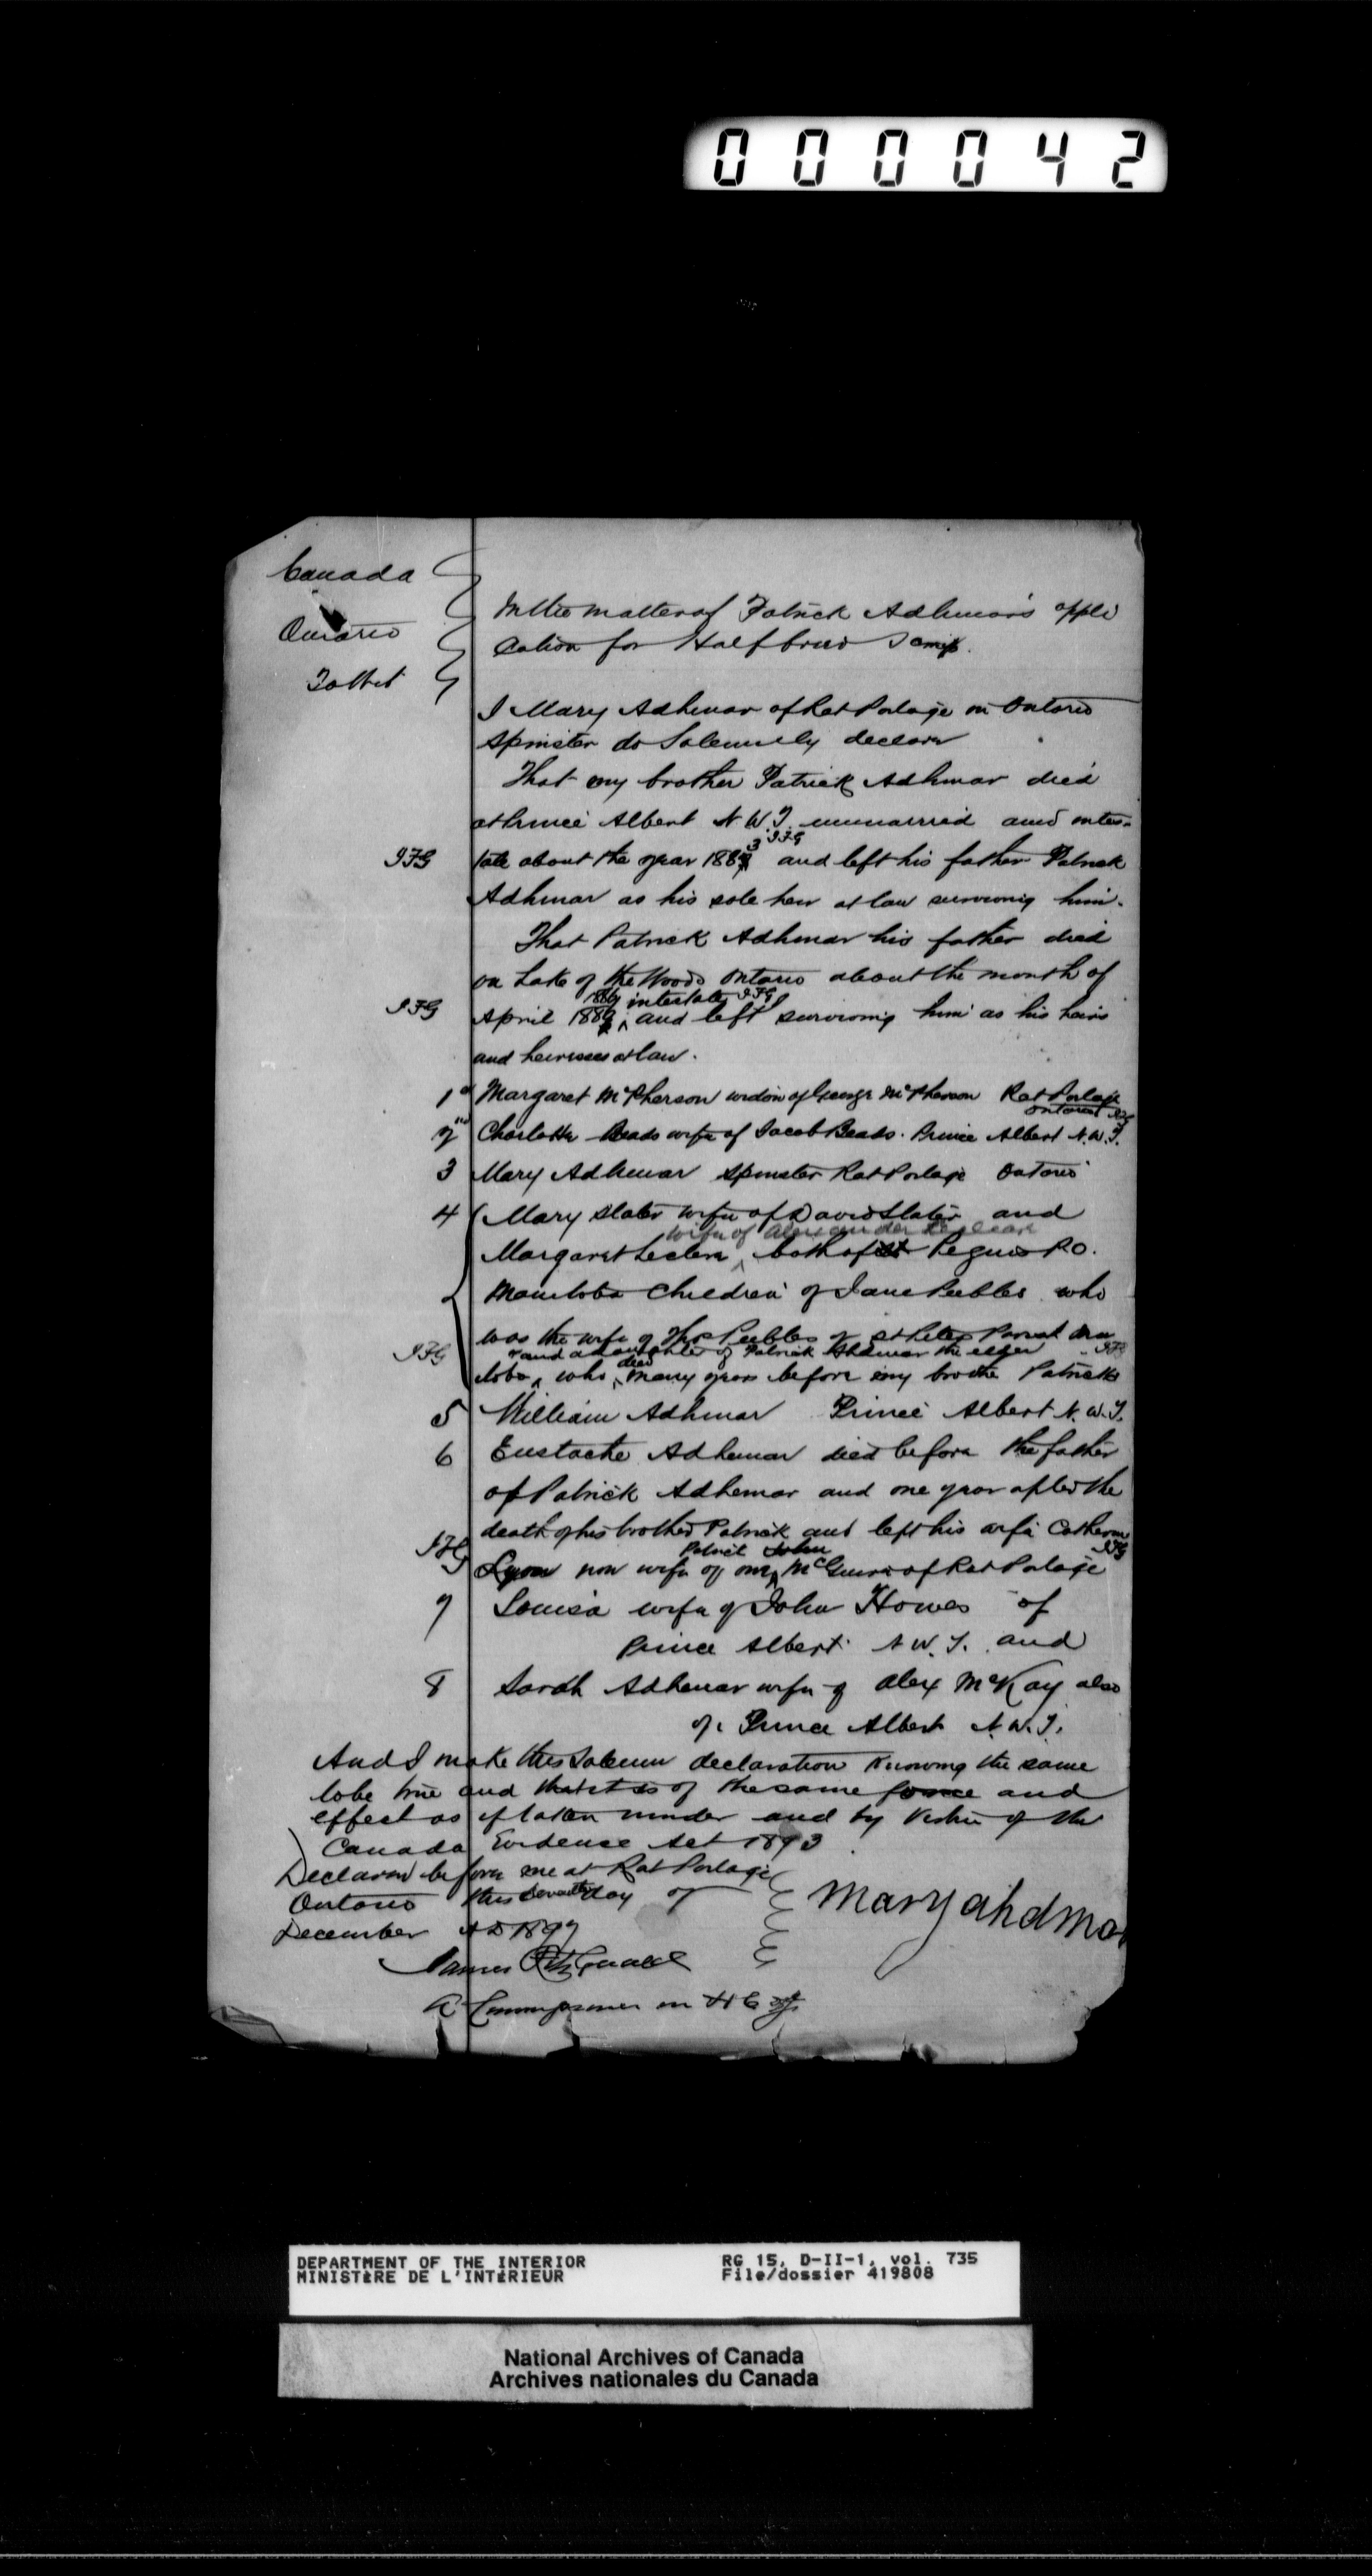 000042
Canada
Ontario
To Wit
In the matter of Patrick Adhemar's appli
cation for Halfbreed Scrip.
I Mary Adhemar of Rat Portage in Ontario
Spinster do Solemnly declare
That my brother Patrick Adhmar died
at Prince Albert N.W.T. unmarried and intes-
3 JFG
JFG tate about the year 188 and left his father Patrick
Adhmar as his sole heir at law surviving him.
That Patrick Adhmar his father died
on Lake of the Woods Ontario about the month of
intestate JFG
JFG April and left surviving him as his heirs
and heiresses at law.
1st Margaret McPherson widow of George McPherson Rat Portage
Ontario JFG
2nd Charlotte Beads wife of Jacob Beads. Prince Albert N.W.T.
3 Mary Adhemar Spinster Rat Portage Ontario
4 Mary Slater wife of David Slater and
wife of Alexander
Margaret both of Peguis P.O.
Manitoba Children of Jane Peebles who
was the wife of Thos Peebles of St Peter Parish Mani
JFG and a daughter of Patrick Adhemar the elder JFG
died
toba, who many years before my brother Patrick
5 William Adhmar Prince Albert N.W.T.
6 Eustache Adhemar died before the father
of Patrick Adhemar and one year after the
death of his brother Patrick and left his wife Catherine
JFG Patrick John JFG
Lyon now wife of one of Rat Portage
7 Louisa wife of John Howes of
Prince Albert N.W.T. and
8 Sarah Adhemar wife of Alex McKay also
of Prince Albert N.W.T.
And I make this Solemn declaration Knowing the same
to be true and that it is of the same force and
effect as if taken under and by virtue of the
Canada Evidence Act 1893
Declared before me at Rat Portage
Ontario this Seventh day of
December AD 1897
Mary ahdmar
James Fitzgerald
A Commissioner in H C J
DEPARTMENT OF THE INTERIOR RG 15, D-II-1, vol. 735
MINISTÈRE DE L'INTÉRIEUR File/dossier 419808
National Archives of Canada
Archives nationales du Canada